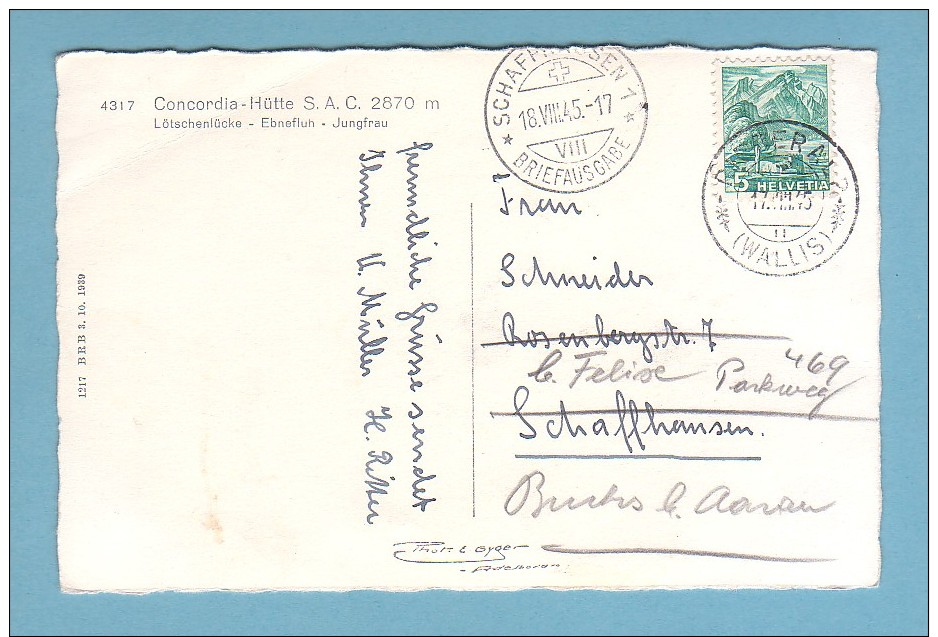 4317 Concordia-Hütte S. A. C. 2870 m
Lötschenlücke - Ebnefluh - Jungfrau
1217 BRB 3. 10. 1939
freundliche Grüsse sendet
Ihnen V. Müller H. Ritter
SCHAFFHAUSEN 1
18.VIII.45.-17
VIII
BRIEFAUSGABE
5 HELVETIA
17.VIII.45
(WALLIS)
Frau
Schneider
Rosenbergstr. 7
b. Felix Parkweg 469
Schaffhausen.
Buchs b. Aarau
Phot. E Gyger
Adelboden